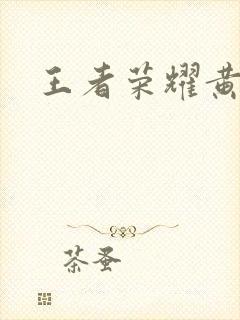 王者荣耀黄
茶蚤